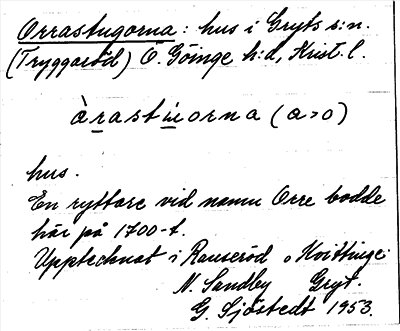 Orrastugorna: hus i Gryts s:n.
(Tryggaröd) Ö. Göinge h:d, Krist. l.
àrastúorna (a>o)
hus.
En ryttare vid namn Orre bodde
här på 1700-t.
Upptecknat i Rauseröd o
N. Sandby Gryt.
G. Sjöstedt 1953.